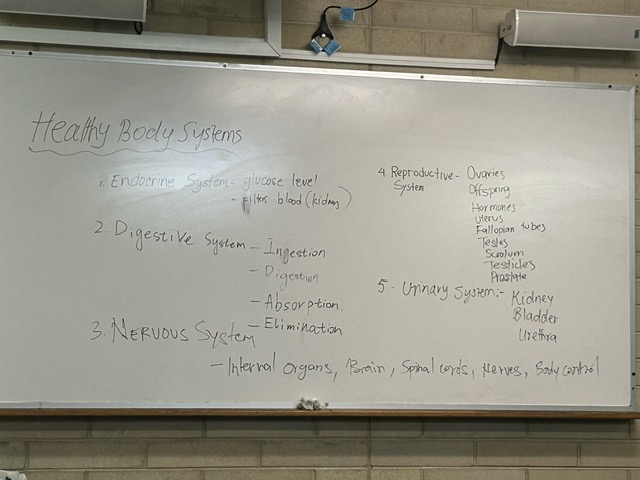 Healthy Body Systems
1. Endocrine System - glucose level
- Filters blood (kidney)
2. Digestive System - Ingestion
- Digestion
- Absorption.
- Elimination
3. Nervous System
- Internal organs, Brain, Spinal cords, Nerves, Body control
4. Reproductive - Ovaries
System Offspring
Hormones
Uterus
Fallopian tubes
Testes
Scrotum
Testicles
Prostate
5 - Urinary System:- Kidney
Bladder
Urethra